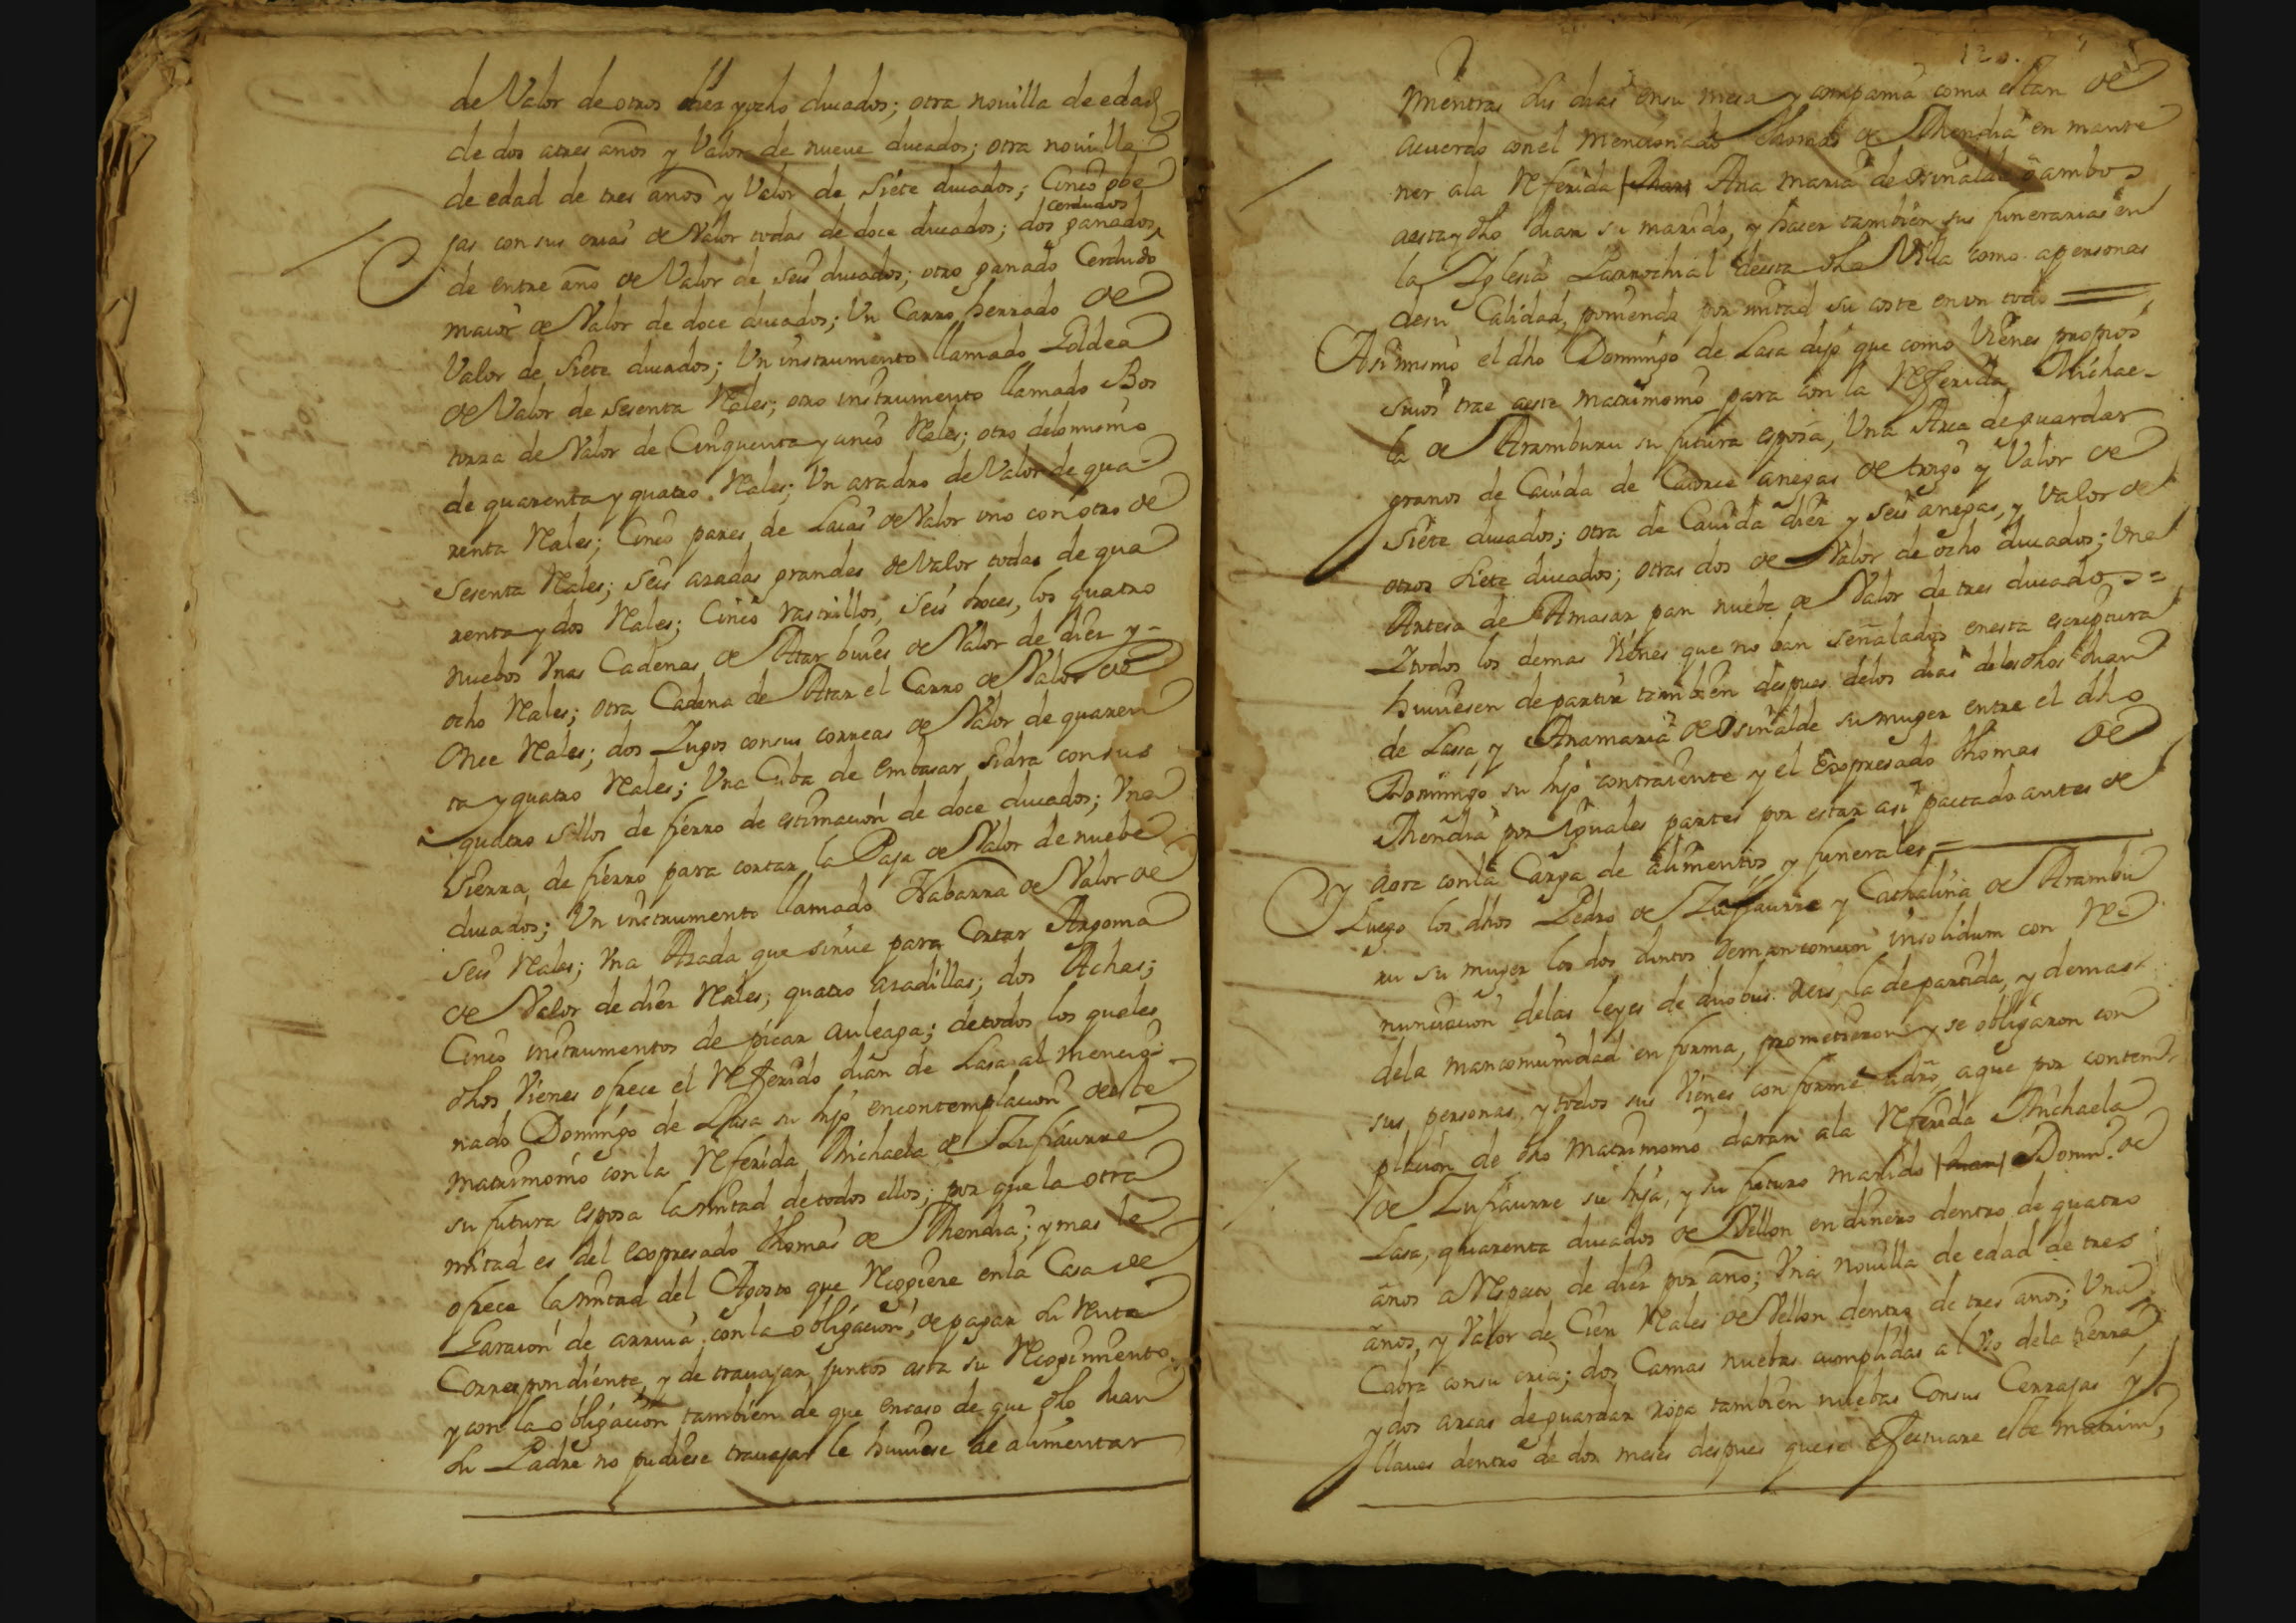 de Valor de otros diez y ocho ducados; otra nouilla de edad
de dos atres años y Valor de nueue ducados; otra nouilla
de edad de tres años y Valor de Siete ducados; Cinco obe
jas con sus crias de Valor todas de doce ducados; dos ganados
cerdudos
de entre año de Valor de seis ducados; otro ganado Cerdudo
maior de Valor de doce ducados; Un Carro herrado de
Valor de Siete ducados; Un instrumento llamado Goldea
de Valor de Sesenta Reales; otro instrumento llamado Bos
torza de Valor de Cinquenta y cinco Reales; otro delo mismo
de quarenta y quatro Reales; Un aradro de Valor de qua
renta Reales; Cinco pares de Laias de Valor uno con otro de
Sesenta Reales; Seis azadas grandes de Valor todas de qua
renta y dos Reales; Cinco rastrillos, Seis hoces, los quatro
nuebos Vnas Cadenas de Atar bueies de Valor de diez y
ocho Reales; otra Cadena de Atar el Carro de Valor de
Once Reales; dos Lugos consus correas de Valor de quaren
ta y quatro Reales; Una Cuba de embasar Sidra consus
quatro sellos de fierro de estimacion de doce ducados; Vna
Sierra de fierro para cortar la Paja de Valor de nuebe
ducados; Un instrumento llamado Nabarra de Valor de
Seis Reales; Vna Azada que sirue para Cortar Argoma
de Valor de diez Reales; quatro azadillas; dos Achas;
Cinco instrumentos de picar auleaga; detodos los quales
dhos Vienes ofrece el Referido Juan de Lasa al mencio
nado Domingo de Lasa su hijo encontemplacion deeste
matrimonio con la Referida Michaela de Zufiaurre
su futura esposa la mitad detodos ellos; por que la otra
mitad es del expresado thomas de Mendia; y mas le
ofrece la mitad del Agosto que Recogiere enla Casa de
Garacoi de arriua, con la obligacion de pagar su Renta
Correspondiente y de trauajar juntos asta su Recogimiento
y con la obligacion tambien de que encaso de que dho Juan
su Padre no pudiese trauajar le huuiese de alimentar
120.
mientras sus dias en su mesa y compania como estan de
acuerdo con el mencionado thomas de Mendia en mante
ner ala Referida Ana maria de Osinalde
aesta y dho Juan su marido, y hacer tambien sus funerarias en
la Iglesia Parrochial deesta dha Villa como apersonas
desu Calidad, poniendo por mitad su coste en un todo
Asi mismo el dho Domingo de Lasa dijo que como Vienes propios
suios trae aeste matrimonio para con la Referida Michae-
la de Aramburu su futura esposa, Una Arca de guardar
granos de Cauida de Catorce anegas de trigo y Valor de
Siete ducados; otra de Cauida diez y seis anegas, y Valor de
otros Siete ducados; otras dos de Valor de ocho ducados; Una
Artesa de Amasar pan nueba de Valor de tres ducados =
Ytodos los demas Vienes que no ban señalados enesta escriptura
huuiesen de partir tambien despues delos dias delos dhos Juan
de Lassa, y Anamaria de Osinalde su muger entre el dho
Domingo su hijo contraiente y el Expresado thomas de
Mendia por Yguales partes por estar asi pactado antes de
aora conla Carga de alimentos, y funerales =
Y Luego los dhos Pedro de Zufiaurre y Cathalina de Arambu
ru su muger los dos Juntos demancomun insolidum con Re
nunciacion delas leyes de duobus reis, la departida, y demas
dela mancomunidad en forma, prometieron y se obligaron con
sus personas, y todos sus Vienes conforme adro, aque por contem
placion de dho matrimonio daran ala Referida Michaela
de Zufiaurre su hija, y su futuro marido Domin.o de
Lasa, quarenta ducados de Vellon en dinero dentro de quatro
años aRespecto de diez por año; Vna nouilla de edad de tres
años, y Valor de Cien Reales de Vellon dentro de tres años; Una
Cabra consu cria; dos Camas nuebas cumplidas al Vso dela tierra,
y dos arcas deguardar ropa tambien nuebas Consus Cerrajas y
llaues dentro de dos meses despues quese efectuare este matrim.o